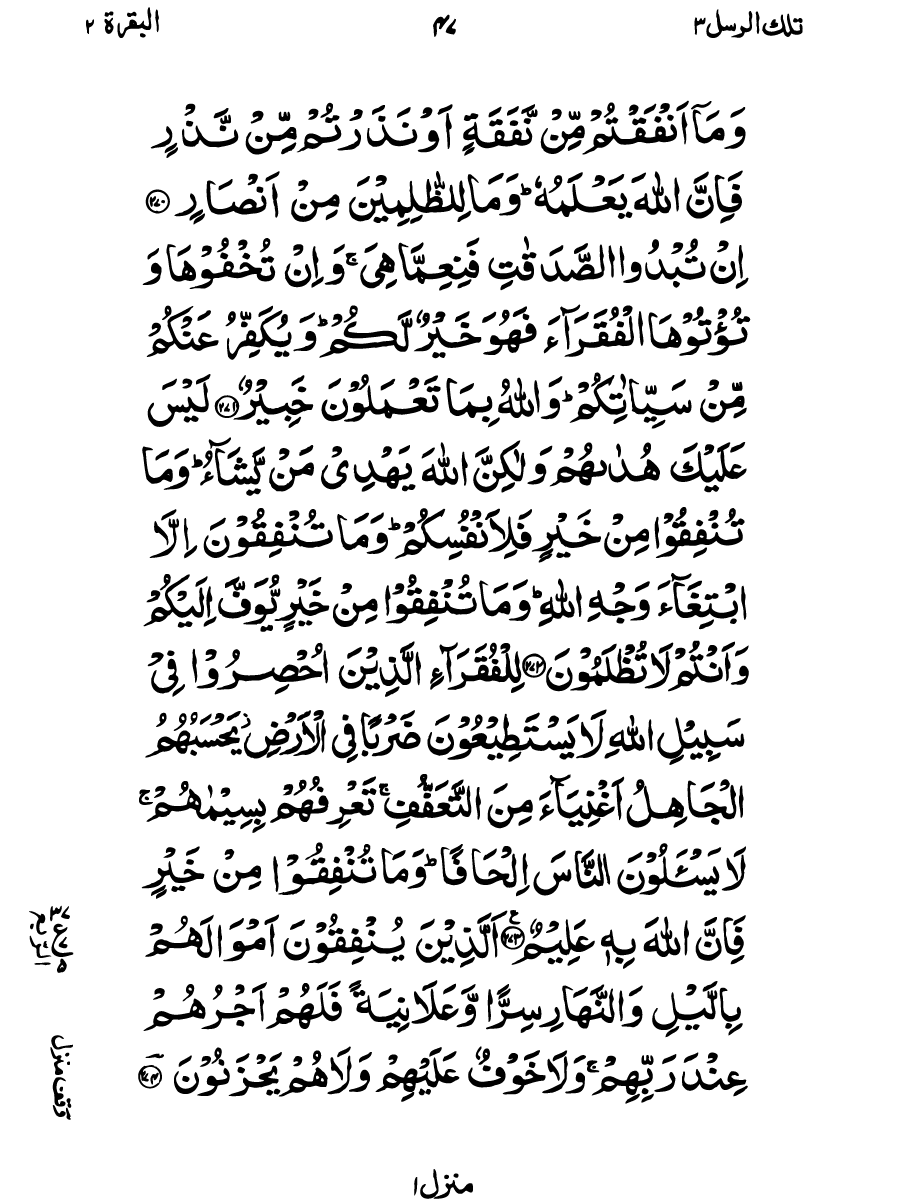 تلك الرسل ٣
٤٧
البقرة ٢
وَمَآ اَنْفَقْتُمْ مِّنْ نَّفَقَةٍ اَوْ نَذَرْتُمْ مِّنْ نَّذْرٍ
فَاِنَّ اللّٰهَ يَعْلَمُهٗ ؕ وَمَا لِلظّٰلِمِيْنَ مِنْ اَنْصَارٍ ﴿۲۷۰﴾
اِنْ تُبْدُوا الصَّدَقٰتِ فَنِعِمَّا هِىَ ۚ وَاِنْ تُخْفُوْهَا وَ
تُؤْتُوْهَا الْفُقَرَآءَ فَهُوَ خَيْرٌ لَّكُمْ ؕ وَ يُكَفِّرُ عَنْكُمْ
مِّنْ سَيِّاٰتِكُمْ ؕ وَاللّٰهُ بِمَا تَعْمَلُوْنَ خَبِيْرٌ ﴿۲۷۱﴾ لَيْسَ
عَلَيْكَ هُدٰٮهُمْ وَلٰكِنَّ اللّٰهَ يَهْدِىْ مَنْ يَّشَآءُ ؕ وَمَا
تُنْفِقُوْا مِنْ خَيْرٍ فَلِاَنْفُسِكُمْ ؕ وَمَا تُنْفِقُوْنَ اِلَّا
ابْتِغَآءَ وَجْهِ اللّٰهِ ؕ وَمَا تُنْفِقُوْا مِنْ خَيْرٍ يُّوَفَّ اِلَيْكُمْ
وَاَنْتُمْ لَا تُظْلَمُوْنَ ﴿۲۷۲﴾ لِلْفُقَرَآءِ الَّذِيْنَ اُحْصِرُوْا فِىْ
سَبِيْلِ اللّٰهِ لَا يَسْتَطِيْعُوْنَ ضَرْبًا فِى الْاَرْضِ ۫ يَحْسَبُهُمُ
الْجَاهِلُ اَغْنِيَآءَ مِنَ التَّعَفُّفِ ۚ تَعْرِفُهُمْ بِسِيْمٰهُمْ ۚ
لَا يَسْـَٔلُوْنَ النَّاسَ اِلْحَافًا ؕ وَمَا تُنْفِقُوْا مِنْ خَيْرٍ
فَاِنَّ اللّٰهَ بِهٖ عَلِيْمٌ ﴿۲۷۳﴾ ع اَلَّذِيْنَ يُنْفِقُوْنَ اَمْوَالَهُمْ
بِالَّيْلِ وَالنَّهَارِ سِرًّا وَّعَلَانِيَةً فَلَهُمْ اَجْرُهُمْ
عِنْدَ رَبِّهِمْ ۚ وَلَا خَوْفٌ عَلَيْهِمْ وَلَا هُمْ يَحْزَنُوْنَ ﴿۲۷۴﴾
وقف منزل
منزل ۱